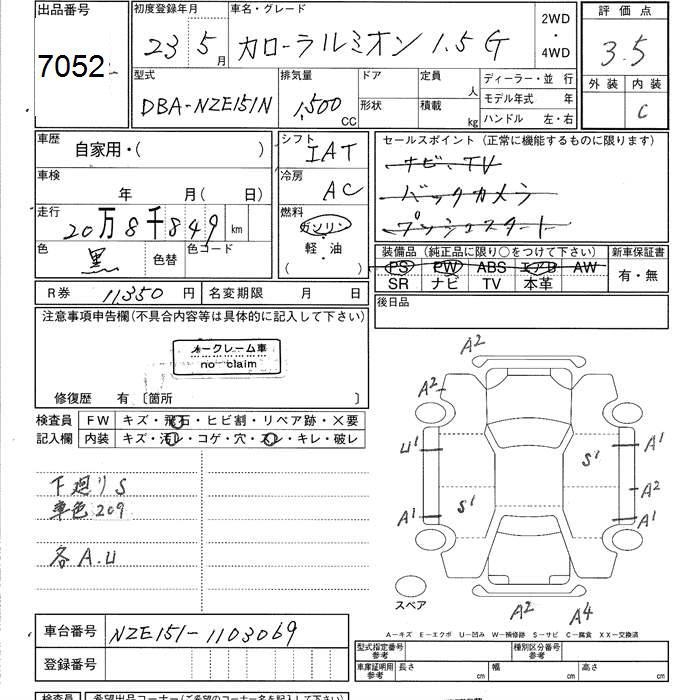 出品番号
7052
初度登録年月
23 5月
車名・グレード
カローラルミオン 1.5G
2WD
・
4WD
評価点
3.5
外装
内装
C
型式
DBA-NZE151N
排気量
1,500 CC
ドア
形状
定員
人
積載
kg
ディーラー・並 行
モデル年式 年
ハンドル 左・右
車歴
自家用・( )
車検
年 月( 日)
走行
20万8千849 km
色
黒
色替
色コード
シフト
IAT
冷房
AC
燃料
ガソリン
軽・油
( )
セールスポイント (正常に機能するものに限ります)
ナビ、TV
バックカメラ
プッシュスタート
装備品 (純正品に限り○をつけて下さい)
PS PW ABS エアB AW
SR ナビ TV 本革
新車保証書
有・無
R券 11350円
名変期限 月 日
後日品
注意事項申告欄(不具合内容等は具体的に記入して下さい)
ノークレーム車
no claim
修復歴 有 〔箇所 〕
検査員
記入欄
FW キズ・飛石・ヒビ割・リペア跡・X要
内装 キズ・汚レ・コゲ・穴・スレ・キレ・破レ
下廻りS
車色209
各A.U
A2
A2
U1
A1
S1
S1
A1
A2
A1
A2
A4
スペア
A-キズ E-エクボ U-凹み W-補修跡 S-サビ C-腐食 XX-交換済
車台番号 NZE151-1103069
登録番号
型式指定番号
参考
種別区分番号
参考
車庫証明用
参考
長さ cm
幅 cm
高さ cm
検査員
希望出品コーナー(ご希望のコーナー名を記入下さい)